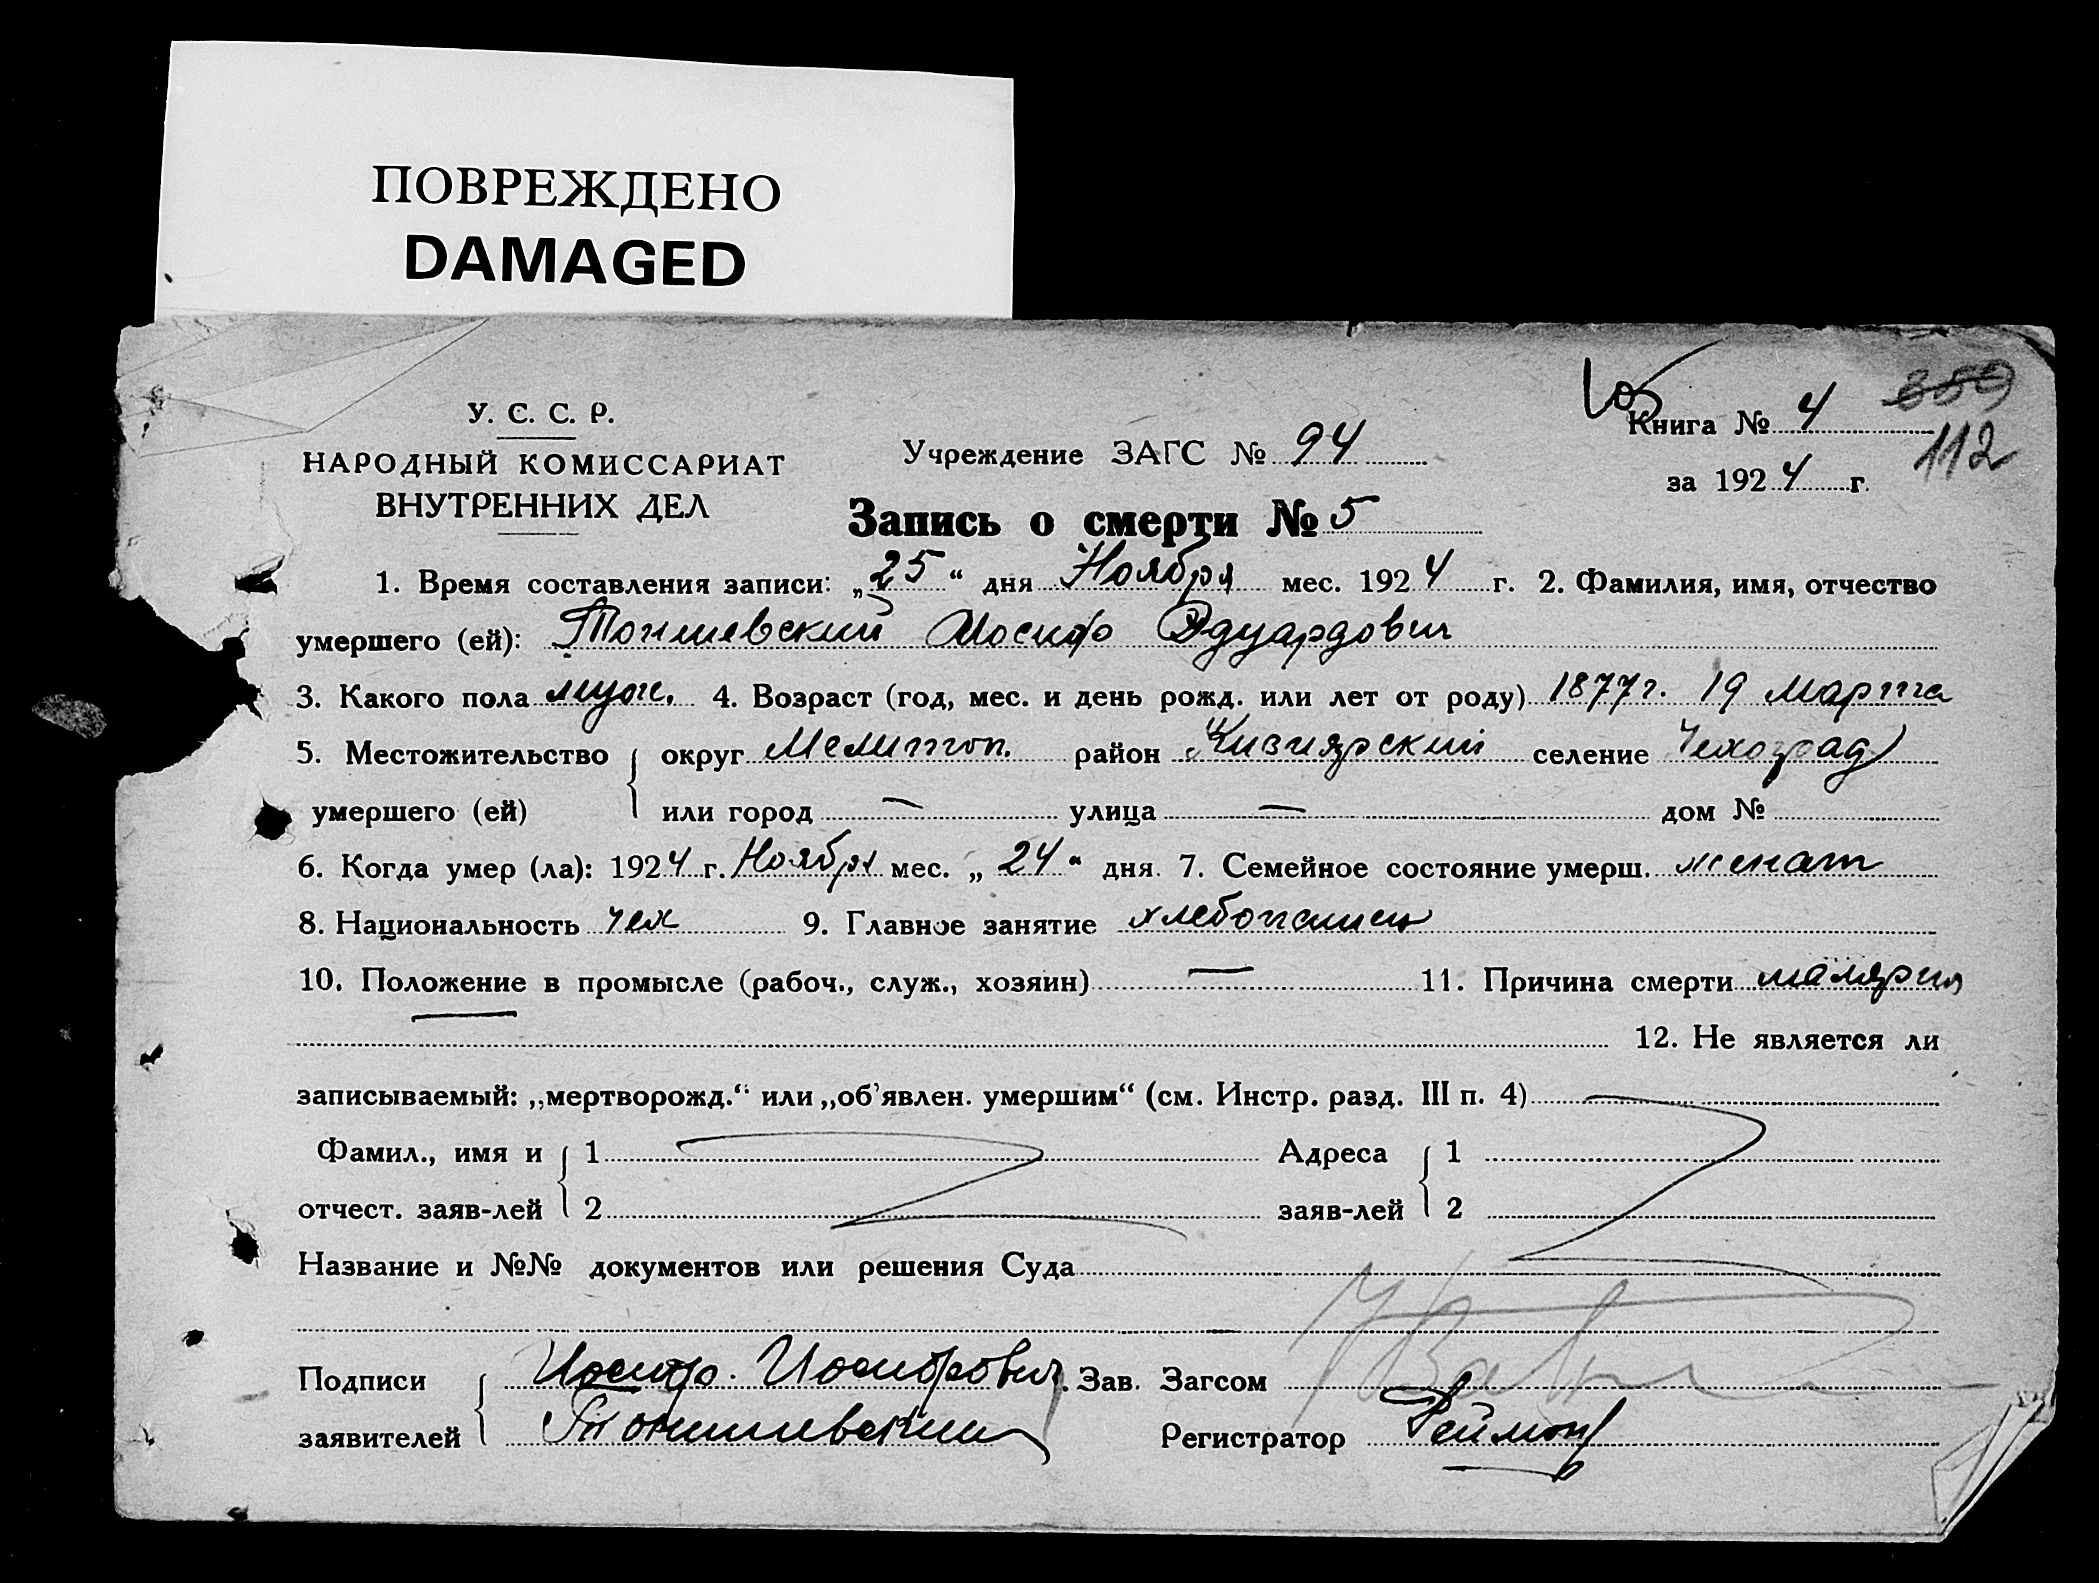 ПОВРЕЖДЕНО
DAMAGED
У. С. С. Р.
НАРОДНЫЙ КОМИССАРИАТ
ВНУТРЕННИХ ДЕЛ
Учреждение ЗАГС № 94
Книга № 4
359
112
за 1924 г.
Запись о смерти № 5
1. Время составления записи: „25“ дня Ноября мес. 1924 г. 2. Фамилия, имя, отчество
умершего (ей): Томшевский Иосиф Эдуардович
3. Какого пола муж. 4. Возраст (год, мес. и день рожд. или лет от роду) 1877 г. 19 Марта
5. Местожительство округ Мелитоп. район Кизиярский селение Чехоград
умершего (ей) или город — улица — дом №
6. Когда умер (ла): 1924 г. Ноября мес. „24“ дня. 7. Семейное состояние умерш. женат
8. Национальность чех 9. Главное занятие хлебопашец
10. Положение в промысле (рабоч., служ., хозяин) — 11. Причина смерти малярия
12. Не является ли
записываемый: „мертворожд.“ или „об'явлен. умершим“ (см. Инстр. разд. III п. 4)
Фамил., имя и 1 Адреса 1
отчест. заяв-лей 2 заяв-лей 2
Название и №№ документов или решения Суда
Подписи Иосиф. Иосифович. Зав. Загсом
заявителей Томшевский Регистратор Реймон